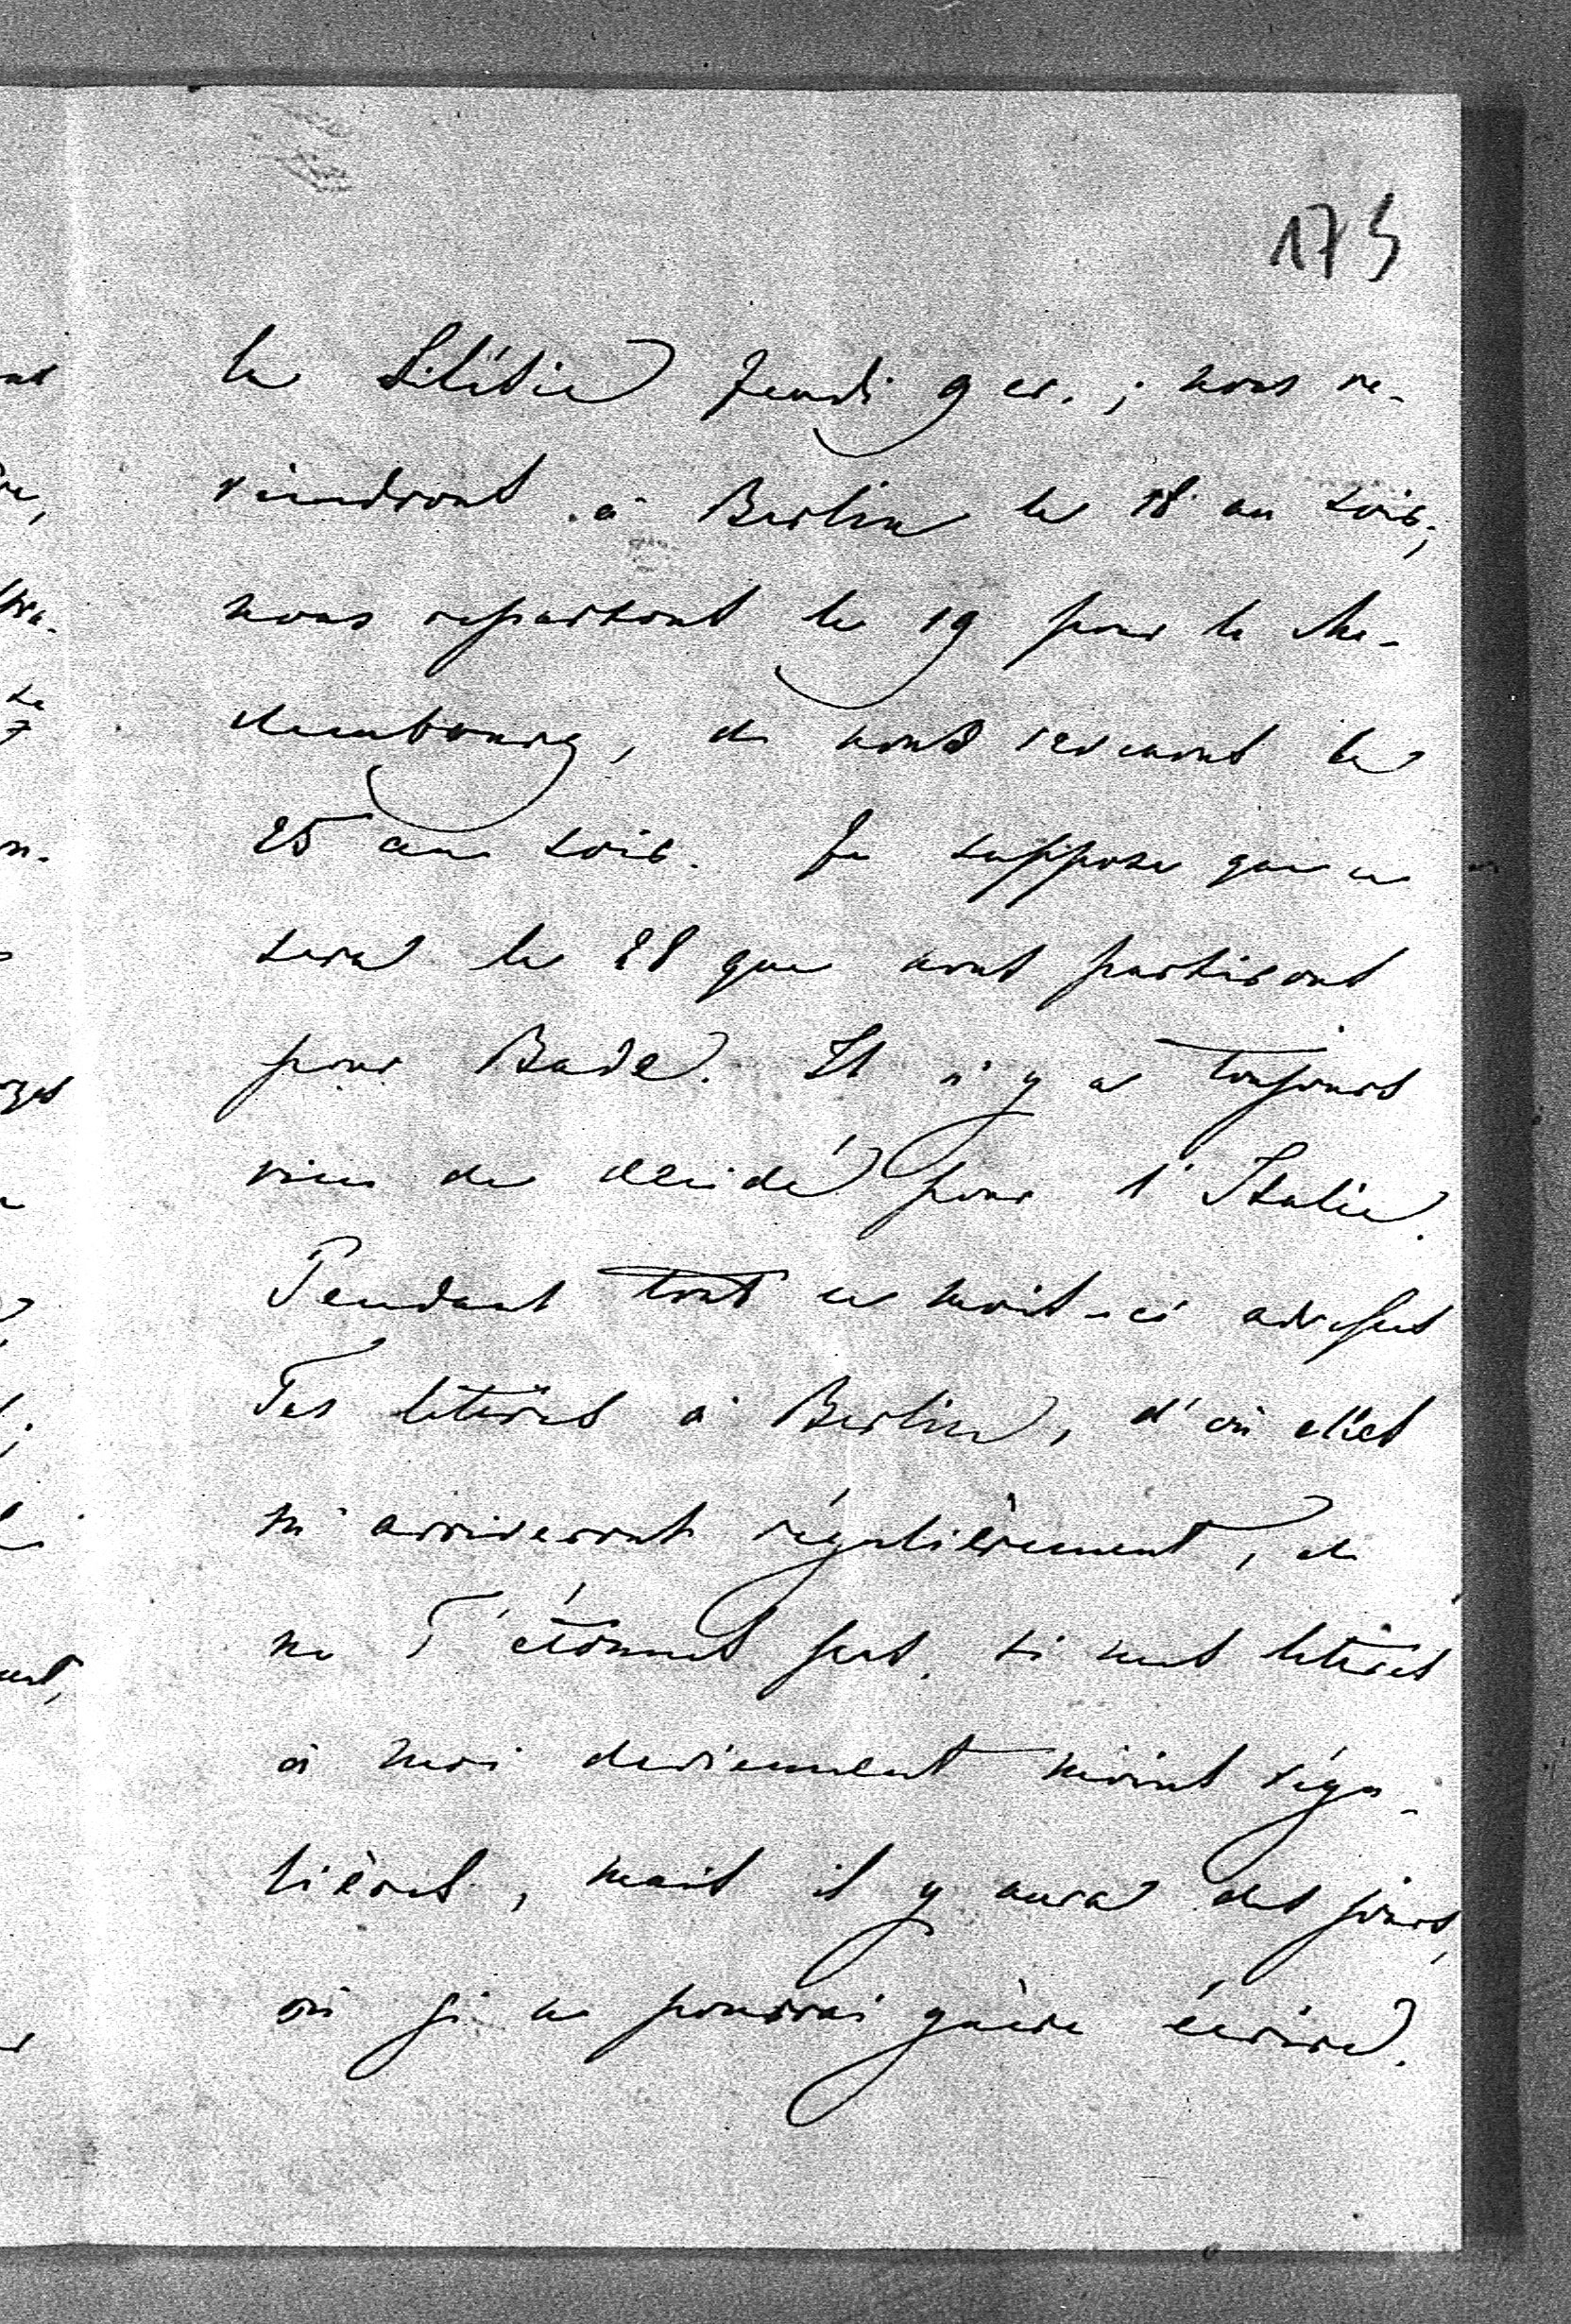 175
la Silésie Jeudi 9 cr. ; nous re-
viendrons à Berlin le 18 au soir;
nous repartons le 19 pour le Me-
clembourg, et nous revenons le
25 au soir. Je suppose que ce
sera le 28 que nous partirons
pour Bade. Il n'y a toujours
rien de décidé pour l'Italie.
Pendant tout ce mois-ci adresses
Tes lettres à Berlin, d'où elles
m'arriveront régulièrement, et
ne T'étonnes pas si mes lettres
à moi deviennent moins régu-
lières, mais il y aura des jours,
où je ne pourrai guère écrire.